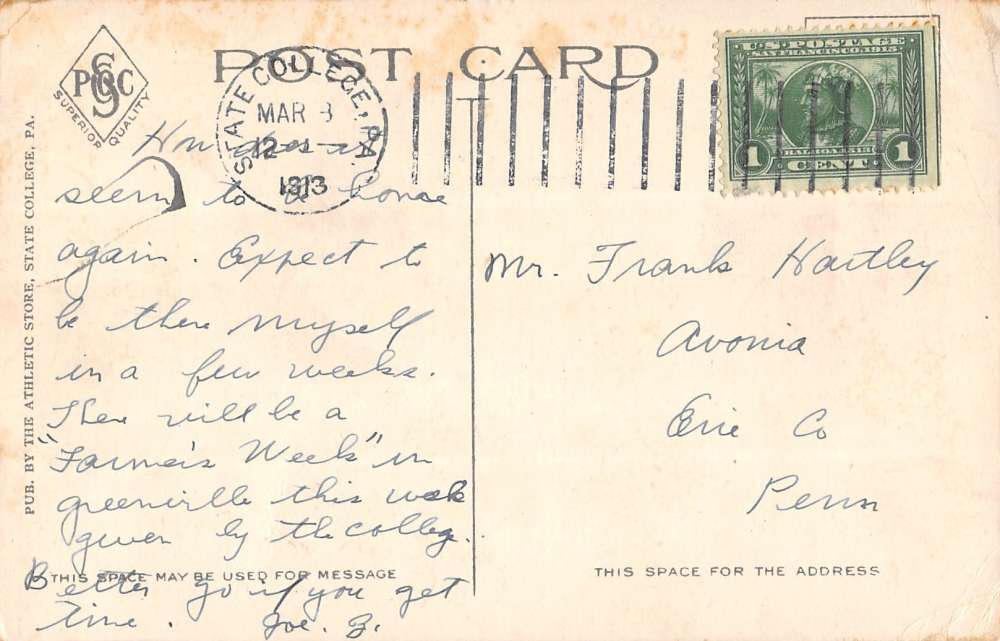 POST CARD
PSCO
SUPERIOR QUALITY
PUB. BY THE ATHLETIC STORE, STATE COLLEGE, PA.
STATE COLLEGE, PA.
MAR 3
12-
1913
U.S. POSTAGE
SAN FRANCISCO 1915
BALBOA 1513
1 CENT 1
How does it
seem to be home
again. Expect to
be there myself
in a few weeks.
There will be a
"Farmer's Week" in
greenville this week
given by the college.
Better go if you get
time. Joe. B.
THIS SPACE MAY BE USED FOR MESSAGE
Mr. Frank Hartley
Avonia
Erie Co
Penn
THIS SPACE FOR THE ADDRESS